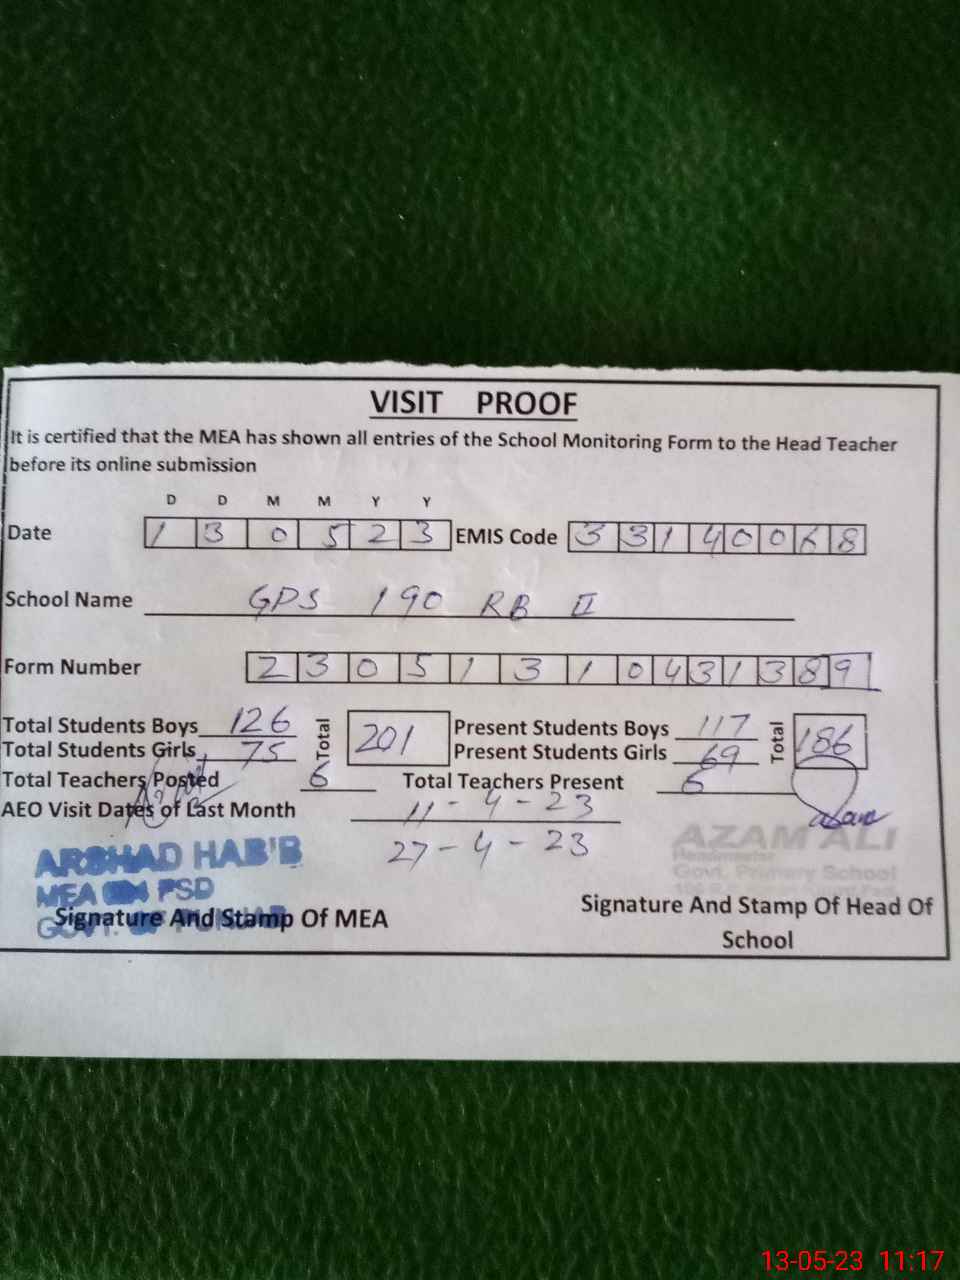 VISIT PROOF
It is certified that the MEA has shown all entries of the School Monitoring Form to the Head Teacher
before its online submission
D D M M Y Y
Date 1 3 0 5 2 3 EMIS Code 3 3 1 4 0 0 6 8
School Name GPS 190 RB II
Form Number 2 3 0 5 1 3 1 0 4 3 1 3 8 9
Total Students Boys 126 Total 201 Present Students Boys 117 Total 186
Total Students Girls 75 Present Students Girls 69
Total Teachers Posted 6 Total Teachers Present 6
AEO Visit Dates of Last Month 11-4-23
27-4-23
ARSHAD HABIB
MEA PSD
GOVT. OF PUNJAB
Signature And Stamp Of MEA
AZAM ALI
Headmaster
Govt. Primary School
Signature And Stamp Of Head Of
School
13-05-23 11:17